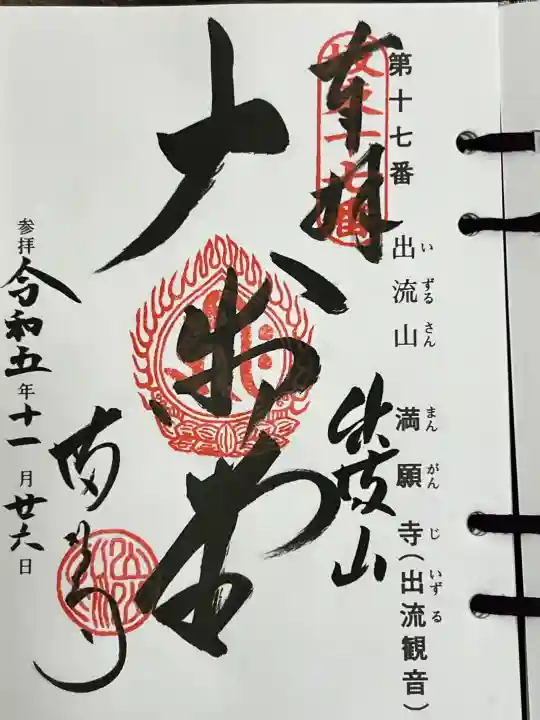 第十七番 出流山 満願寺(出流観音)
いずるさん まんがんじ いずる
奉拝
坂東十七番
出流山
大悲堂
満願寺
参拝 令和五年十一月廿六日